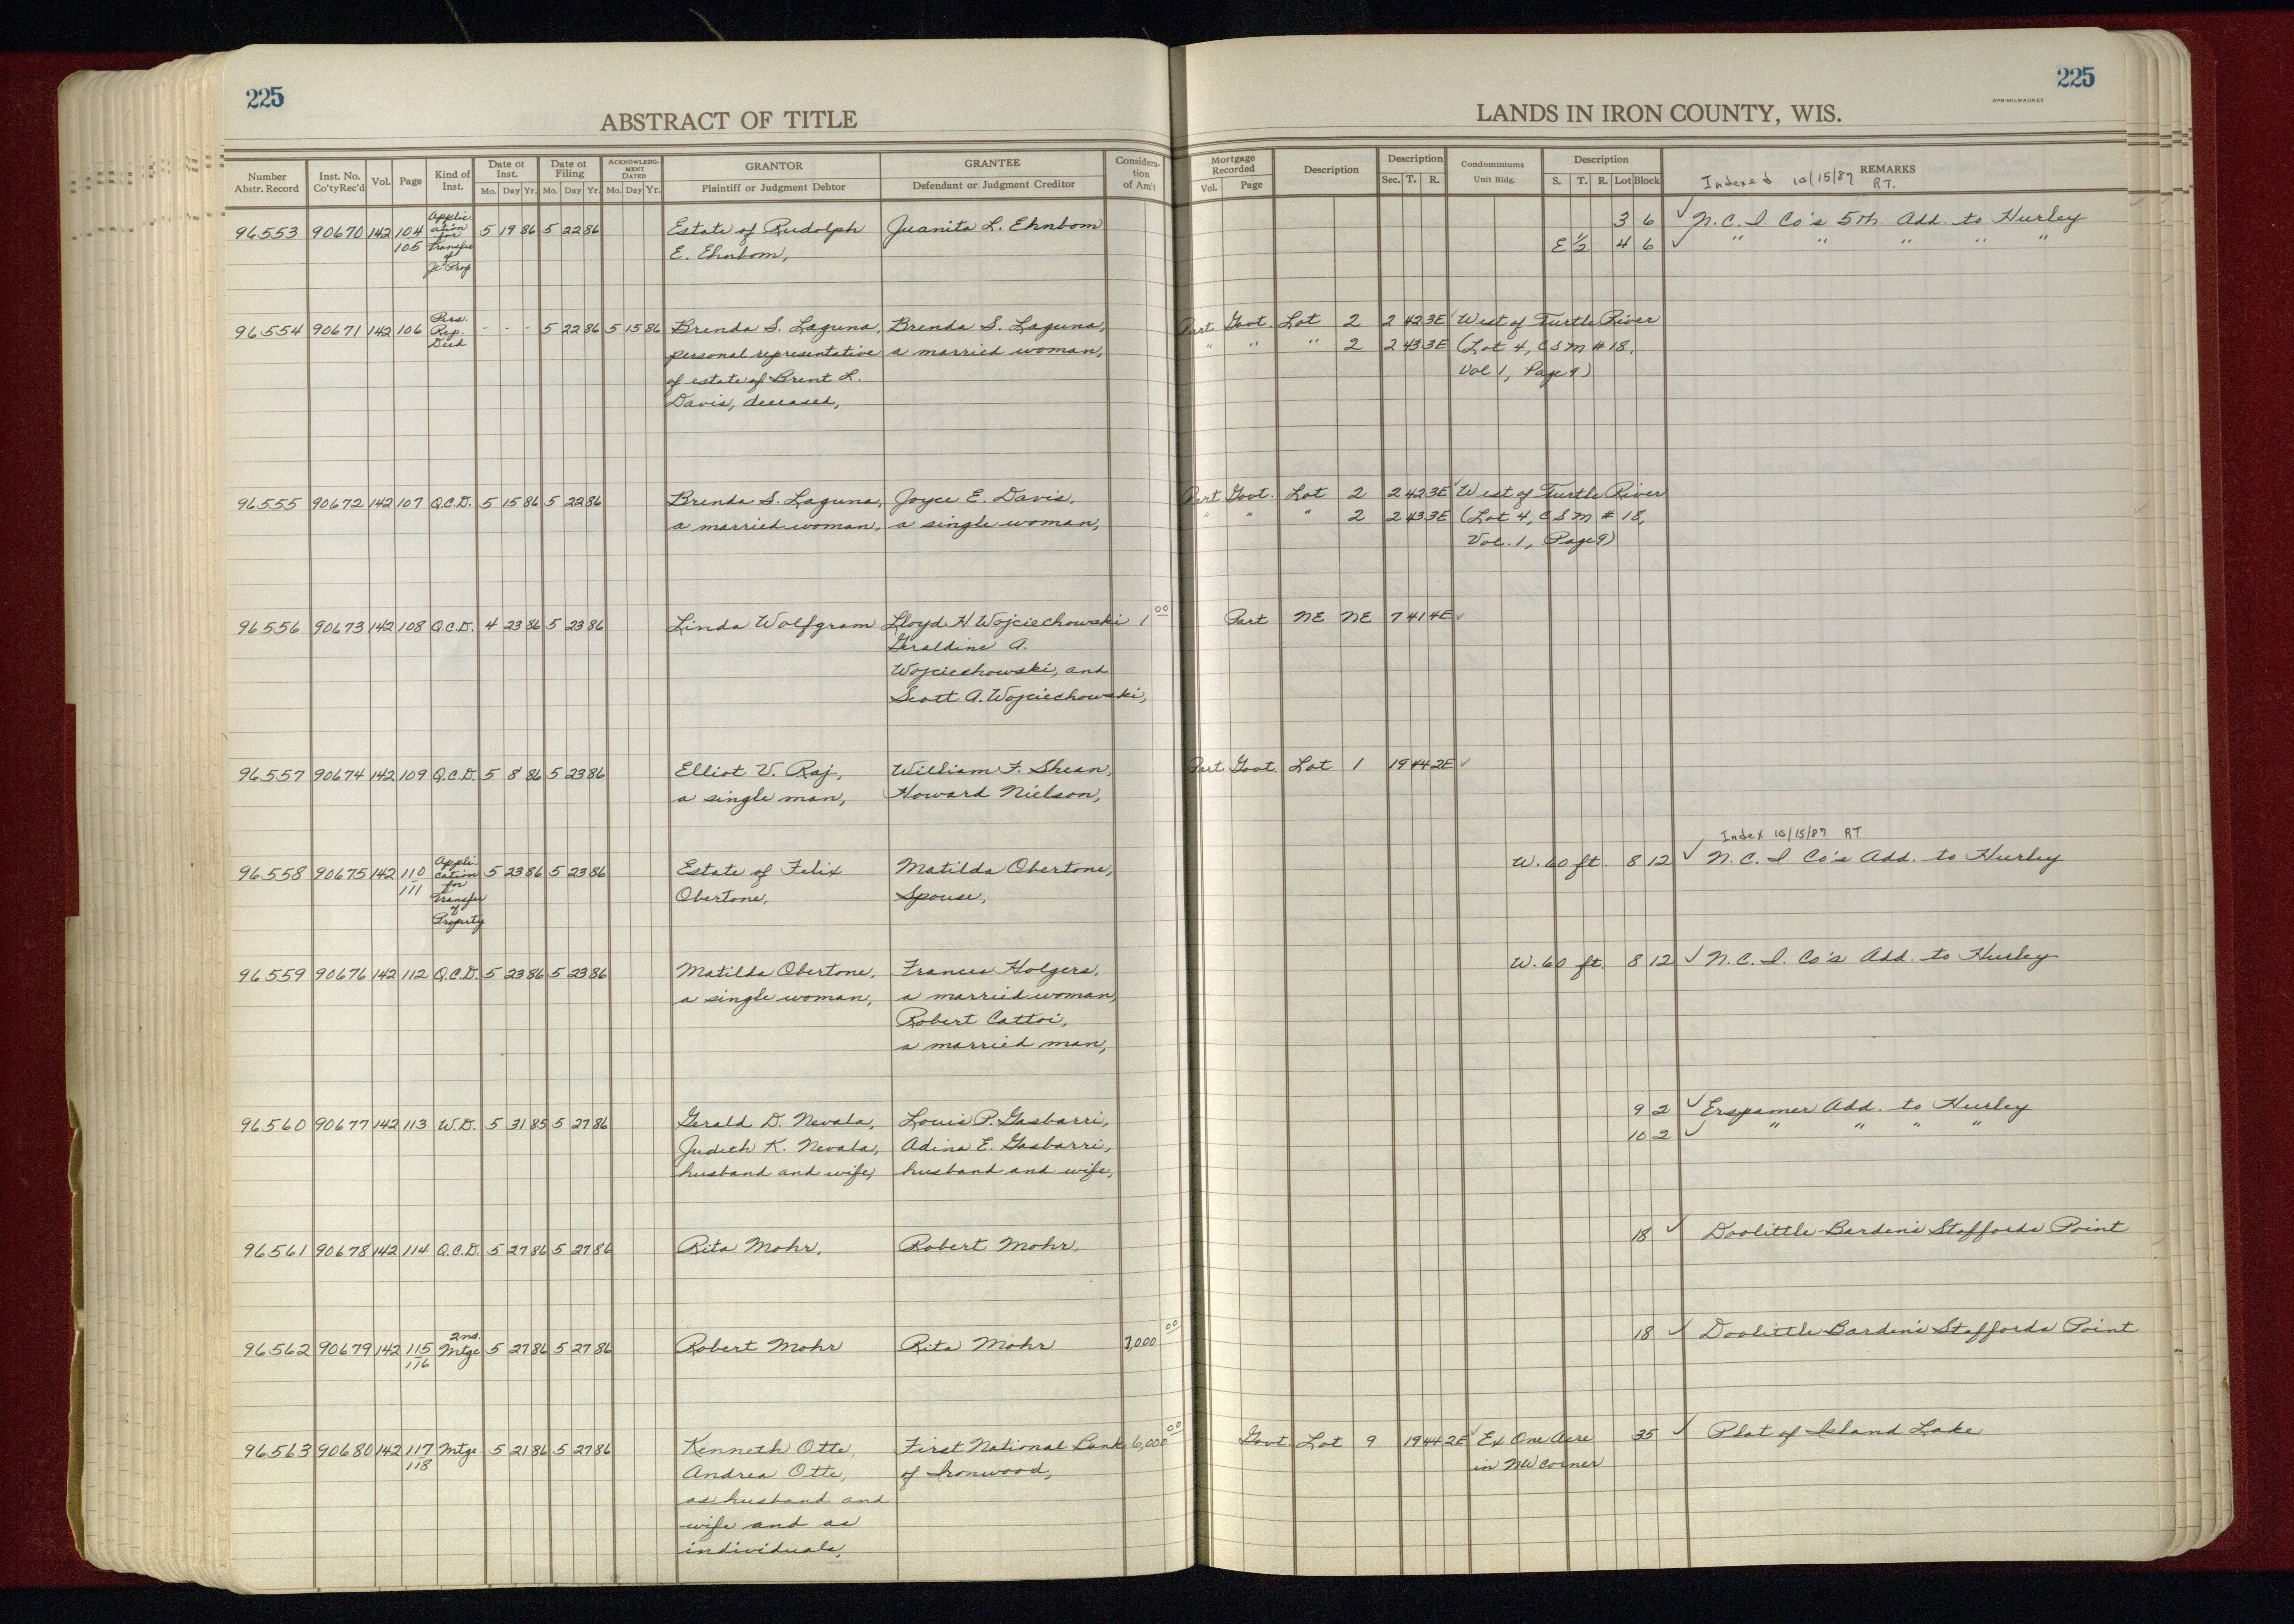 225
ABSTRACT OF TITLE
Number Abstr. Record | Inst. No. Co'ty Rec'd | Vol. | Page | Kind of Inst. | Date of Inst. Mo. Day Yr. | Date of Filing Mo. Day Yr. | ACKNOWLEDGMENT DATED Mo. Day Yr. | GRANTOR Plaintiff or Judgment Debtor | GRANTEE Defendant or Judgment Creditor | Considera-tion of Am't
96553 90670 142 104 Applic- 5 19 86 5 22 86 Estate of Rudolph Juanita L. Ehnbom
105 ation for Transfer of Jt Prop E. Ehnbom,
96554 90671 142 106 Pers. Rep. Deed - - - 5 22 86 5 15 86 Brenda S. Laguna, Brenda S. Laguna,
personal representative a married woman,
of estate of Brent L.
Davis, deceased,
96555 90672 142 107 Q.C.D. 5 15 86 5 22 86 Brenda S. Laguna, Joyce E. Davis,
a married woman, a single woman,
96556 90673 142 108 Q.C.D. 4 23 86 5 23 86 Linda Wolfgram Lloyd H Wojciechowski 1 00
Geraldine A.
Wojciechowski, and
Scott A. Wojciechowski,
96557 90674 142 109 Q.C.D. 5 8 86 5 23 86 Elliot V. Raj, William F. Shean,
a single man, Howard Nielson,
96558 90675 142 110 Appli- 5 23 86 5 23 86 Estate of Felix Matilda Obertone,
111 cation for Transfer of Property Obertone, Spouse,
96559 90676 142 112 Q.C.D. 5 23 86 5 23 86 Matilda Obertone, Frances Holgers,
a single woman, a married woman,
Robert Cattoi,
a married man,
96560 90677 142 113 W.D. 5 31 85 5 27 86 Gerald D. Nevala, Louis P. Gasbarri,
Judith K. Nevala, Adina E. Gasbarri,
husband and wife, husband and wife,
96561 90678 142 114 Q.C.D. 5 27 86 5 27 86 Rita Mohr, Robert Mohr,
96562 90679 142 115 2nd. Mtge 5 27 86 5 27 86 Robert Mohr Rita Mohr ,000 00
116
96563 90680 142 117 Mtge. 5 21 86 5 27 86 Kenneth Otte, First National Bank 6,000 00
118 Andrea Otte, of Ironwood,
as husband and
wife and as
individuals,
225
WPB-MILWAUKEE
LANDS IN IRON COUNTY, WIS.
Mortgage Recorded Vol. Page | Description | Description Sec. T. R. | Condominiums Unit Bldg. | Description S. T. R. Lot Block | REMARKS
Indexed 10/15/87 RT.
3 6 ✓ N.C.I. Co's 5th Add. to Hurley
E 1/2 4 6 ✓ " " " " "
Part Govt. Lot 2 2 42 3E ✓ West of Turtle River
" " " 2 2 43 3E (Lot 4, CSM # 18,
Vol 1, Page 9)
Part Govt. Lot 2 2 42 3E ✓ West of Turtle River
" " " 2 2 43 3E (Lot 4, CSM # 18,
Vol. 1, Page 9)
Part NE NE 7 41 4E ✓
Part Govt. Lot 1 19 44 2E ✓
Index 10/15/87 RT
W. 60 ft. 8 12 ✓ N.C.I Co's Add. to Hurley
W. 60 ft. 8 12 ✓ N.C.I. Co's Add. to Hurley
9 2 ✓ Erspamer Add. to Hurley
10 2 ✓ " " " "
18 ✓ Doolittle-Barden's Staffords Point
18 ✓ Doolittle-Barden's Staffords Point
Govt. Lot 9 19 44 2E ✓ Ex One Acre 35 ✓ Plat of Island Lake
in NW Corner